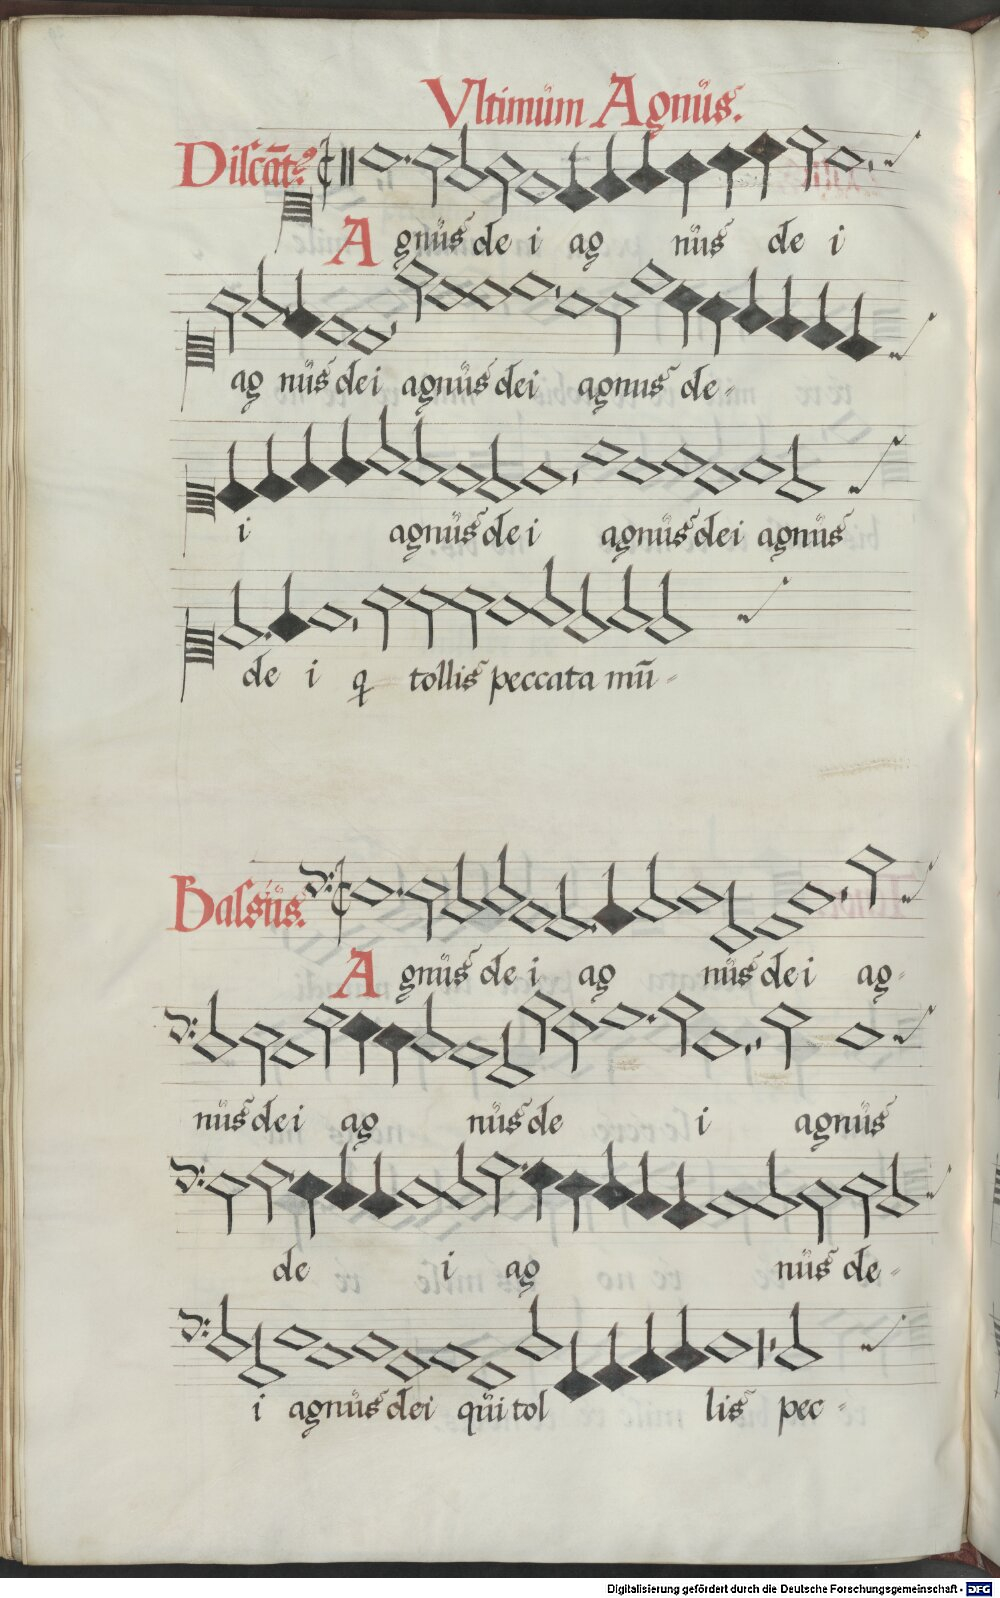 Vltimum Agnus.
Discāt9
A gnus de i ag nus de i
ag nus dei agnus dei agnus de-
i agnus dei agnus dei agnus
de i q tollis peccata mū-
Bassus.
A gnus de i ag nus dei ag-
nus dei ag nus de i agnus
de i ag nus de-
i agnus dei qui tol lis pec-
Digitalisierung gefördert durch die Deutsche Forschungsgemeinschaft - DFG